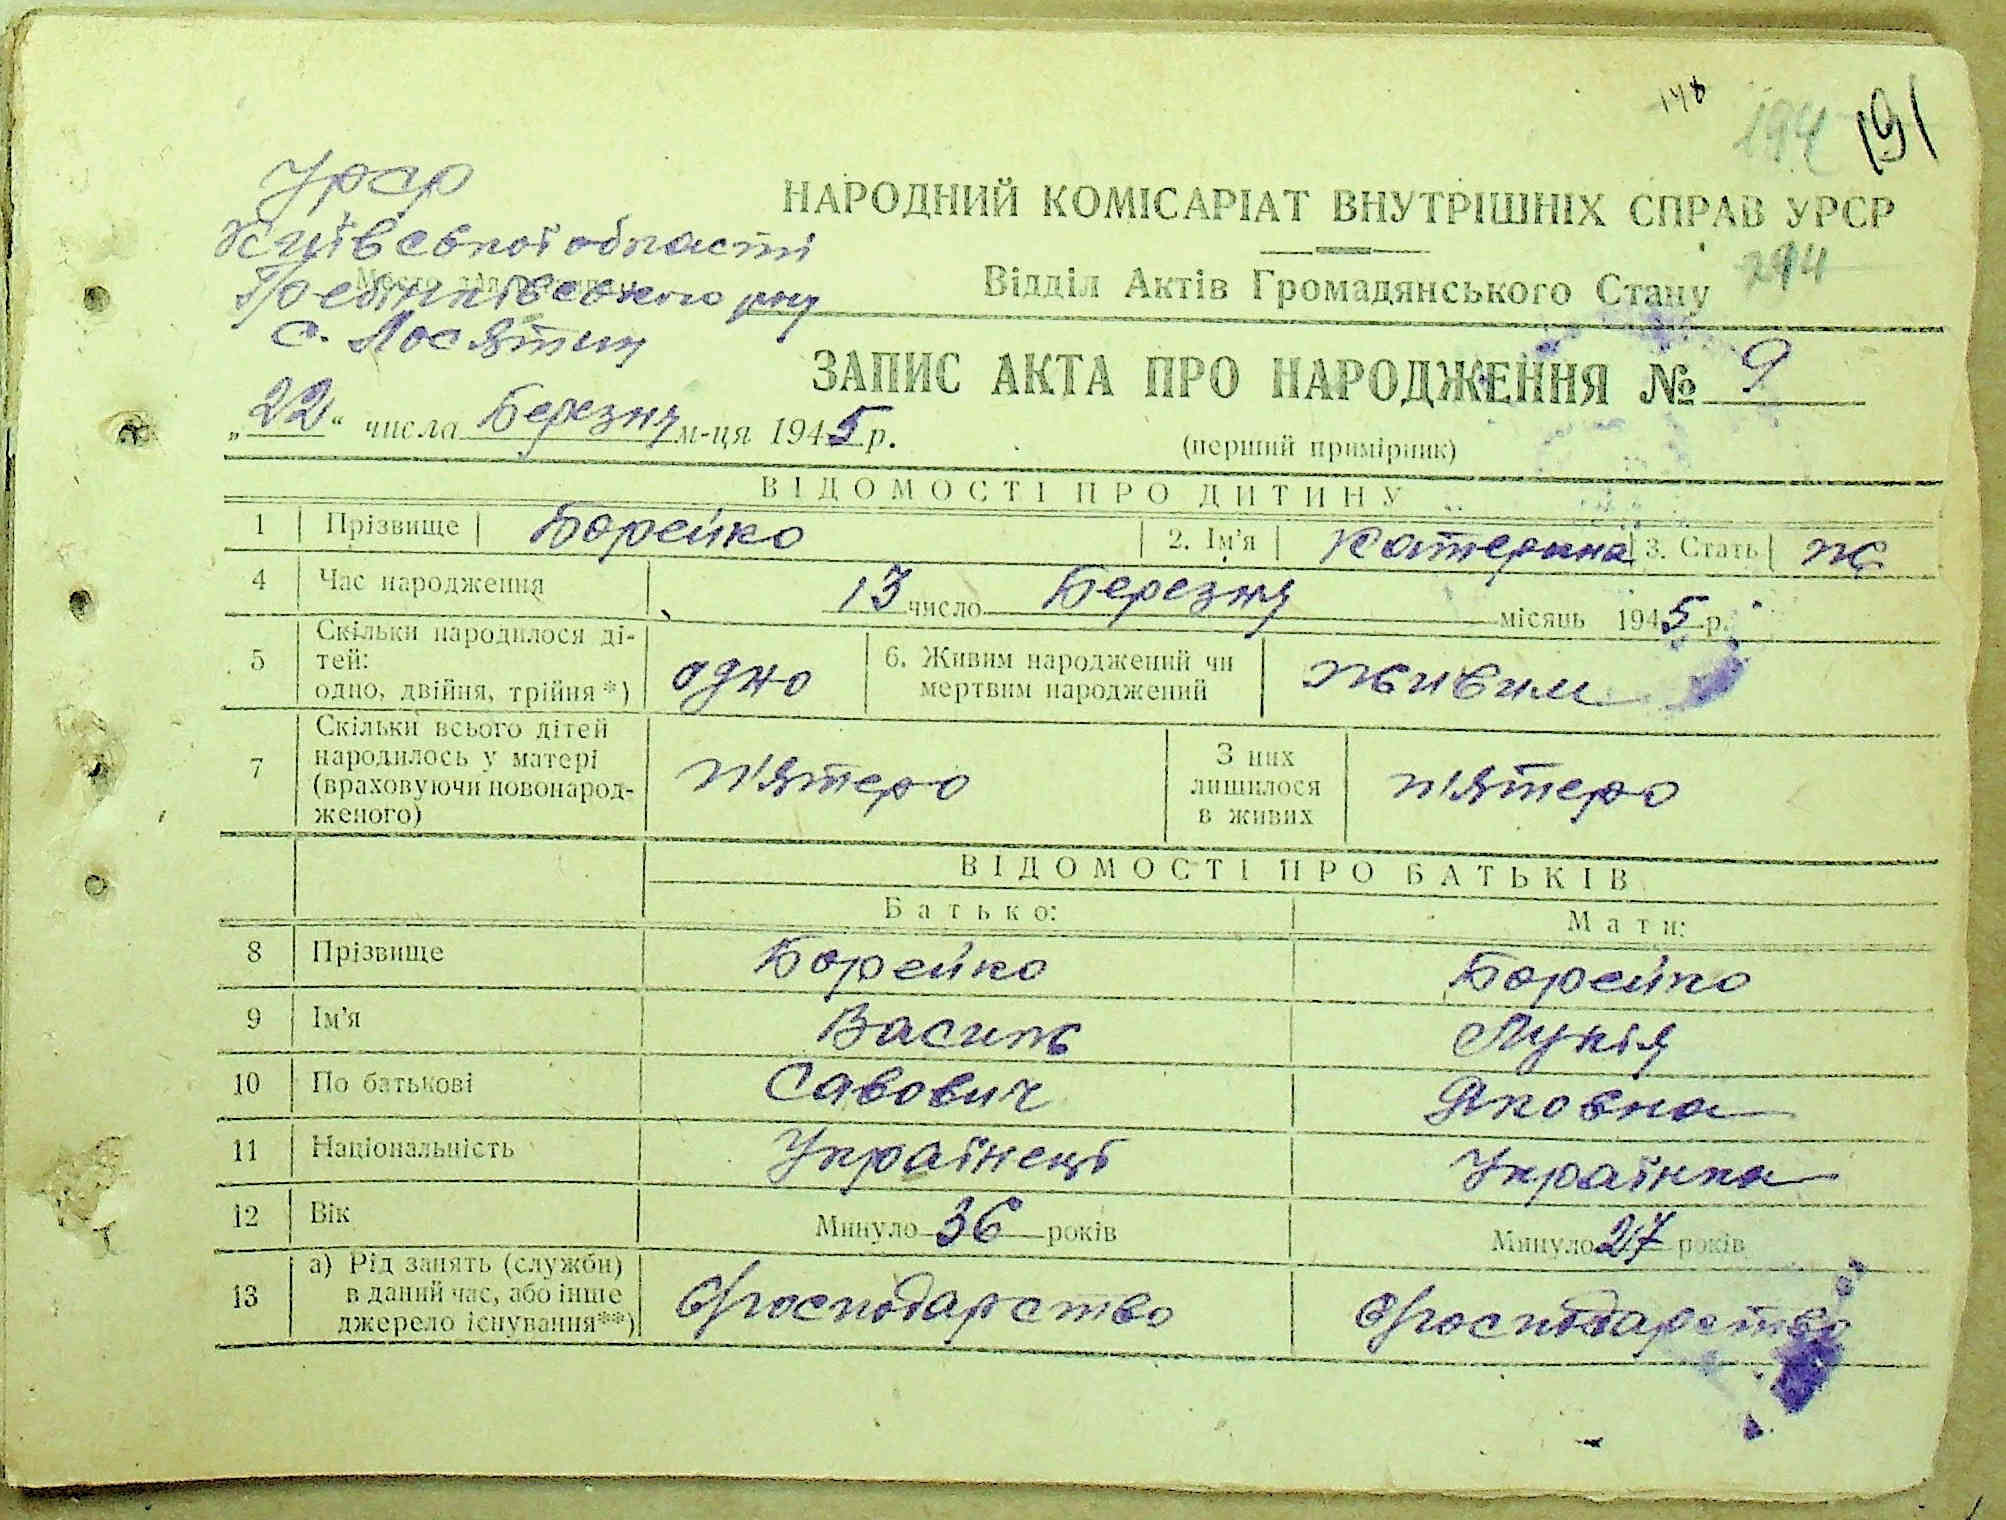 148 194 191
УРСР
НАРОДНИЙ КОМІСАРІАТ ВНУТРІШНІХ СПРАВ УРСР
Київської області
Гребінківского р-ну
Відділ Актів Громадянського Стану 294
с. Лосятин
ЗАПИС АКТА ПРО НАРОДЖЕННЯ № 9
„22“ числа Березня м-ця 1945 р.
(перший примірник)
ВІДОМОСТІ ПРО ДИТИНУ
1 Прізвище Борейко 2. Ім'я Катерина 3. Стать ж
4 Час народження 13 число Березня місяць 1945 р.
5 Скільки народилося ді-
тей:
одно, двійня, трійня*) одно 6. Живим народжений чи
мертвим народжений живим
7 Скільки всього дітей
народилось у матері
(враховуючи новонарод-
женого) п'ятеро З них
лишилося
в живих п'ятеро
ВІДОМОСТІ ПРО БАТЬКІВ
Батько: Мати:
8 Прізвище Борейко Борейко
9 Ім'я Василь Лукія
10 По батькові Савович Яковна
11 Національність Українець Українка
12 Вік Минуло 36 років Минуло 27 років
13 а) Рід занять (служби)
в даний час, або інше
джерело існування**) Господарство Господарство